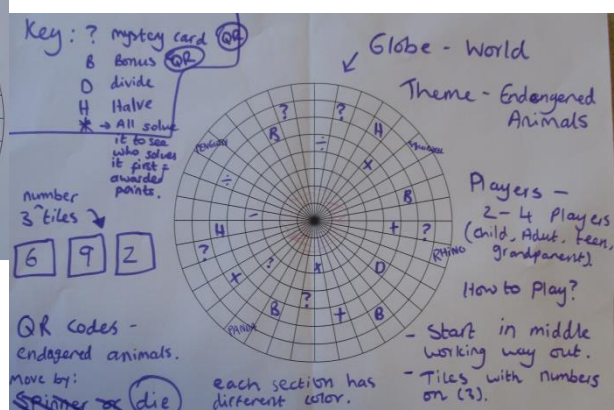 Key: ? mystery card QR
B Bonus QR
D divide
H Halve
* → All solve
it to see
who solves
it first =
awarded
points.
number
3 ^ tiles
6 9 2
QR codes -
endagered animals.
Move by:
Spinner or die
each section has
different color.
Globe - World
Theme - Endangered
Animals
Players -
2-4 Players
(child, Adult, teen,
grandparent)
How to Play?
- Start in middle
working way out.
- Tiles with numbers
on (3).
? ?
B ÷ H
÷ x
B
- H + ?
RHINO
? x ? x D
B ? + B
PANDA